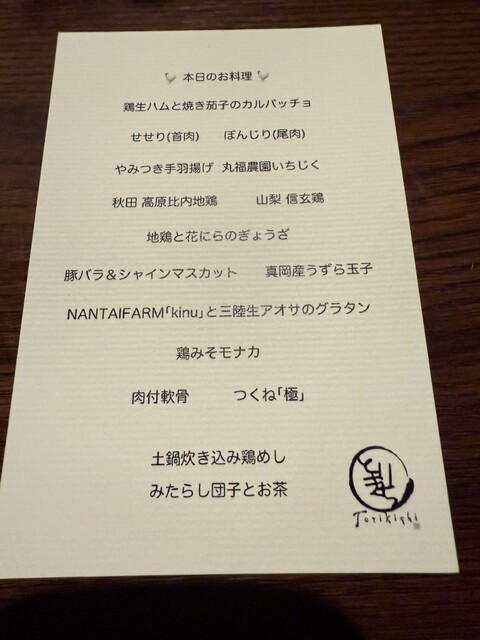 本日のお料理
鶏生ハムと焼き茄子のカルパッチョ
せせり(首肉) ぼんじり(尾肉)
やみつき手羽揚げ 丸福農園いちじく
秋田 高原比内地鶏 山梨 信玄鶏
地鶏と花にらのぎょうざ
豚バラ&シャインマスカット 真岡産うずら玉子
NANTAIFARM「kinu」と三陸生アオサのグラタン
鶏みそモナカ
肉付軟骨 つくね「極」
土鍋炊き込み鶏めし
みたらし団子とお茶
Torikishi